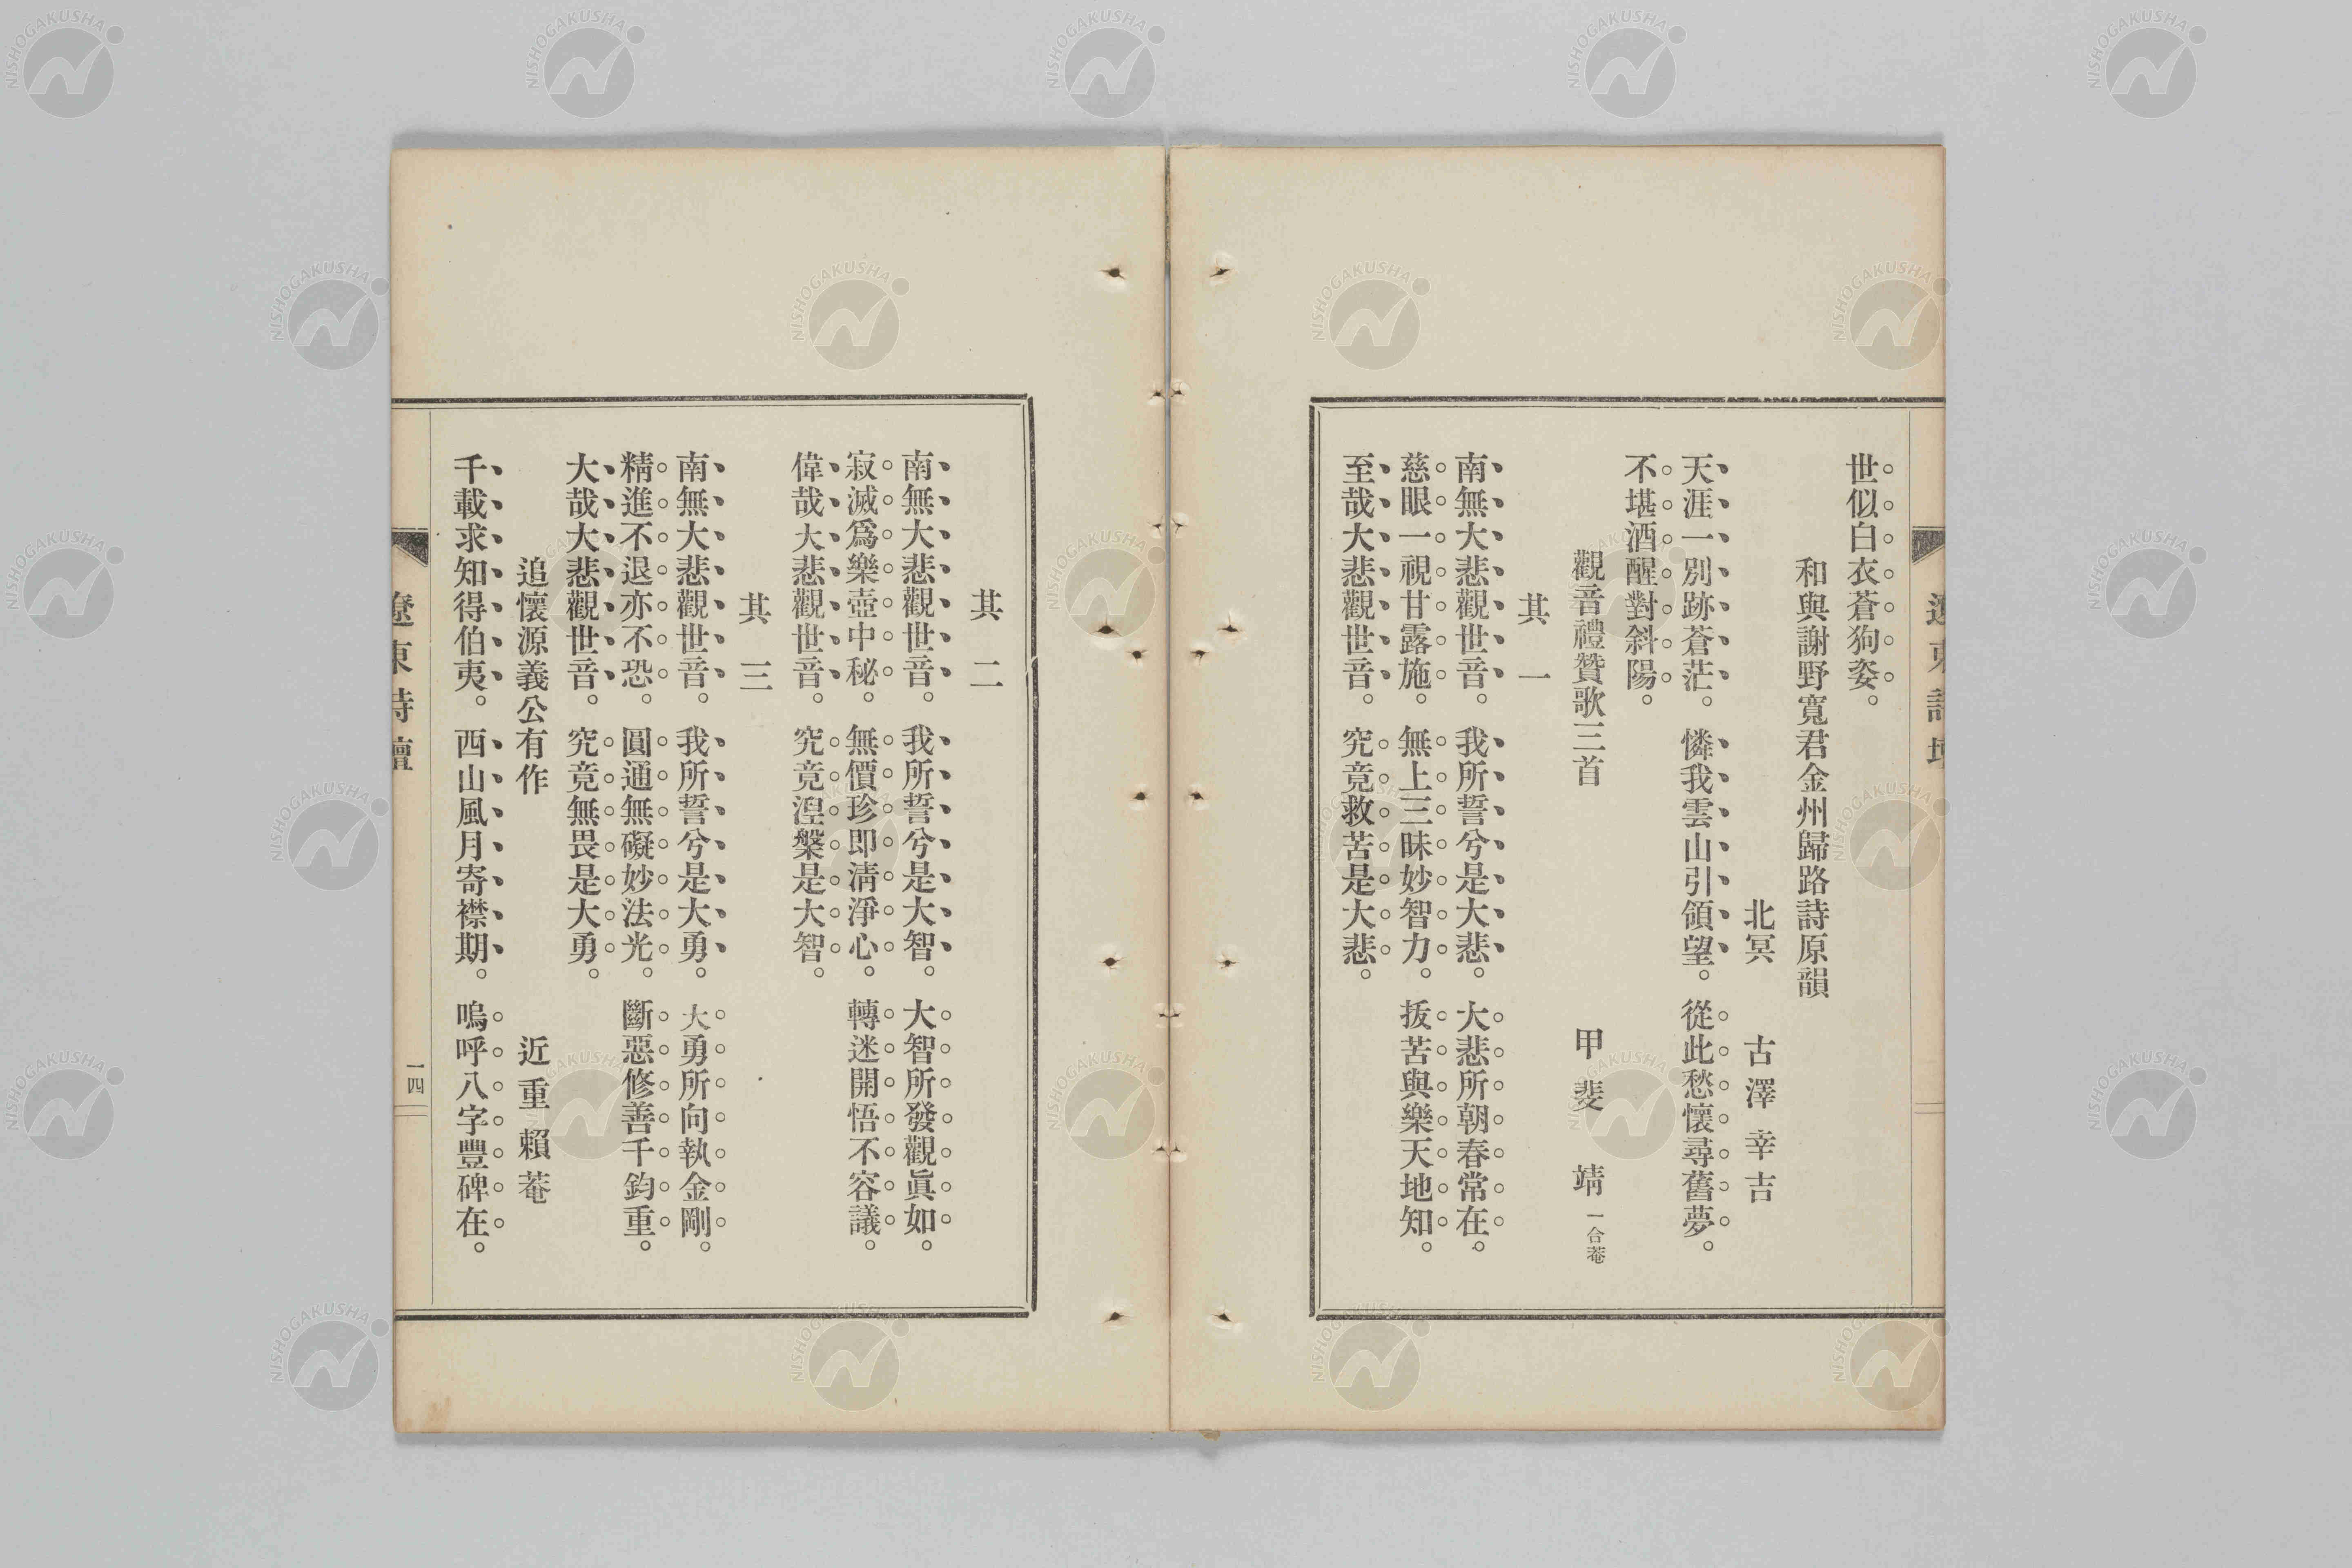 世似白衣蒼狗姿。
和與謝野寬君金州歸路詩原韻
北冥 古澤幸吉
天涯一別跡蒼茫。 憐我雲山引領望。 從此愁懷尋舊夢。
不堪酒醒對斜陽。
觀音禮贊歌三首 甲斐 靖 一合菴
其一
南無大悲觀世音。 我所誓兮是大悲。 大悲所朝春常在。
慈眼一視甘露施。 無上三昧妙智力。 拔苦與樂天地知。
至哉大悲觀世音。 究竟救苦是大悲。
其二
南無大悲觀世音。 我所誓兮是大智。 大智所發觀眞如。
寂滅爲樂壺中秘。 無價珍即淸淨心。 轉迷開悟不容議。
偉哉大悲觀世音。 究竟湼槃是大智。
其三
南無大悲觀世音。 我所誓兮是大勇。 大勇所向執金剛。
精進不退亦不恐。 圓通無礙妙法光。 斷惡修善千鈞重。
大哉大悲觀世音。 究竟無畏是大勇。
追懷源義公有作 近重賴菴
千載求知得伯夷。 西山風月寄襟期。 嗚呼八字豐碑在。
遼東詩壇
一四
NISHOGAKUSHA